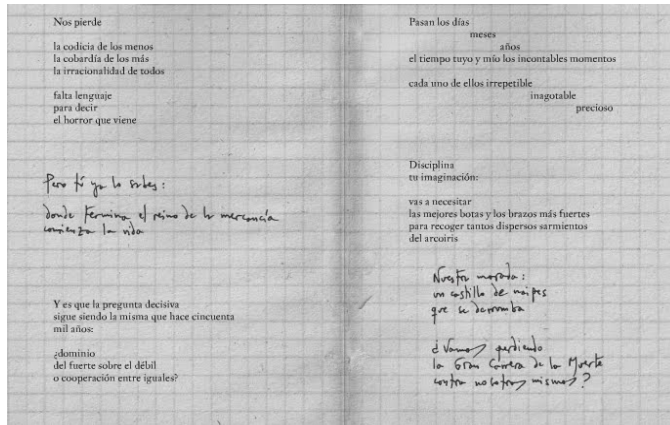 Nos pierde
la codicia de los menos
la cobardía de los más
la irracionalidad de todos
falta lenguaje
para decir
el horror que viene
Pero tú ya lo sabes:
donde termina el reino de la mercancía
comienza la vida
Y es que la pregunta decisiva
sigue siendo la misma que hace cincuenta
mil años:
¿dominio
del fuerte sobre el débil
o cooperación entre iguales?
Pasan los días
meses
años
el tiempo tuyo y mío los incontables momentos
cada uno de ellos irrepetible
inagotable
precioso
Disciplina
tu imaginación:
vas a necesitar
las mejores botas y los brazos más fuertes
para recoger tantos dispersos sarmientos
del arcoiris
Nuestra morada:
un castillo de naipes
que se derrumba
¿Vamos perdiendo
la Gran Carrera de la Muerte
contra nosotros mismos?